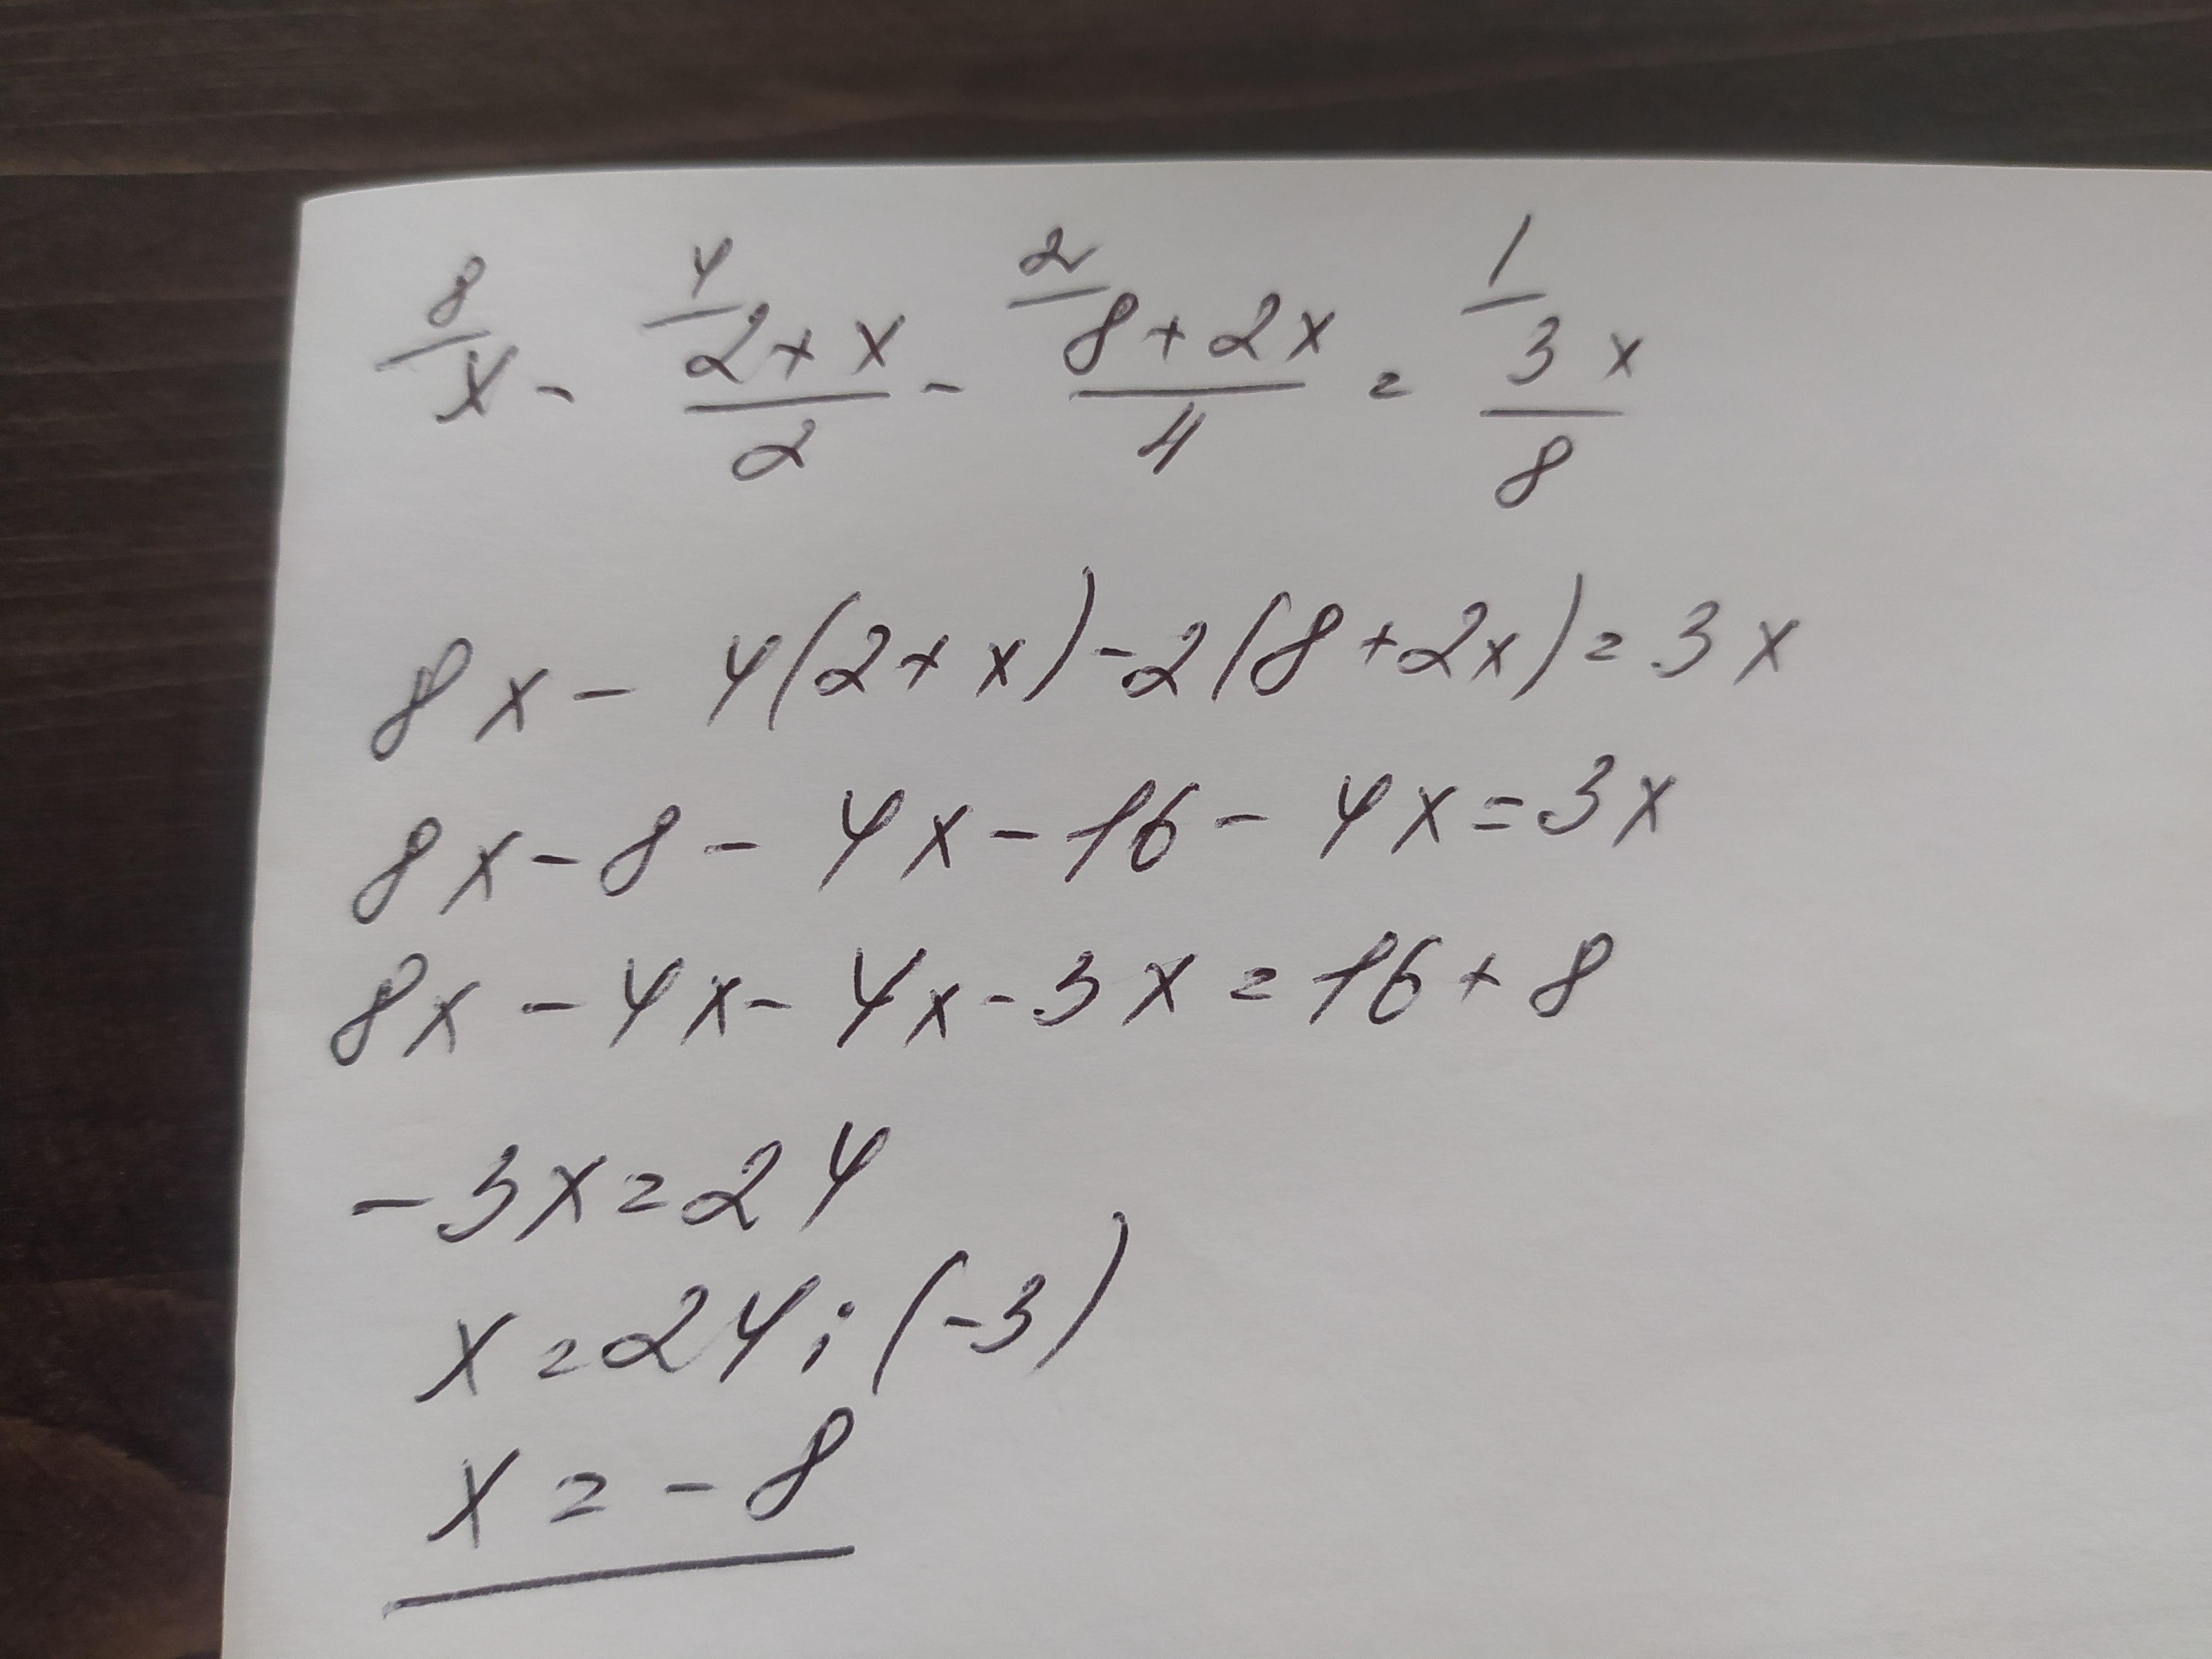 8/ x - 4/ (2+x)/2 - 2/ (8+2x)/4 = 1/ 3x/8
8x - 4(2+x) - 2(8+2x) = 3x
8x - 8 - 4x - 16 - 4x = 3x
8x - 4x - 4x - 3x = 16 + 8
-3x = 24
x = 24 : (-3)
x = -8